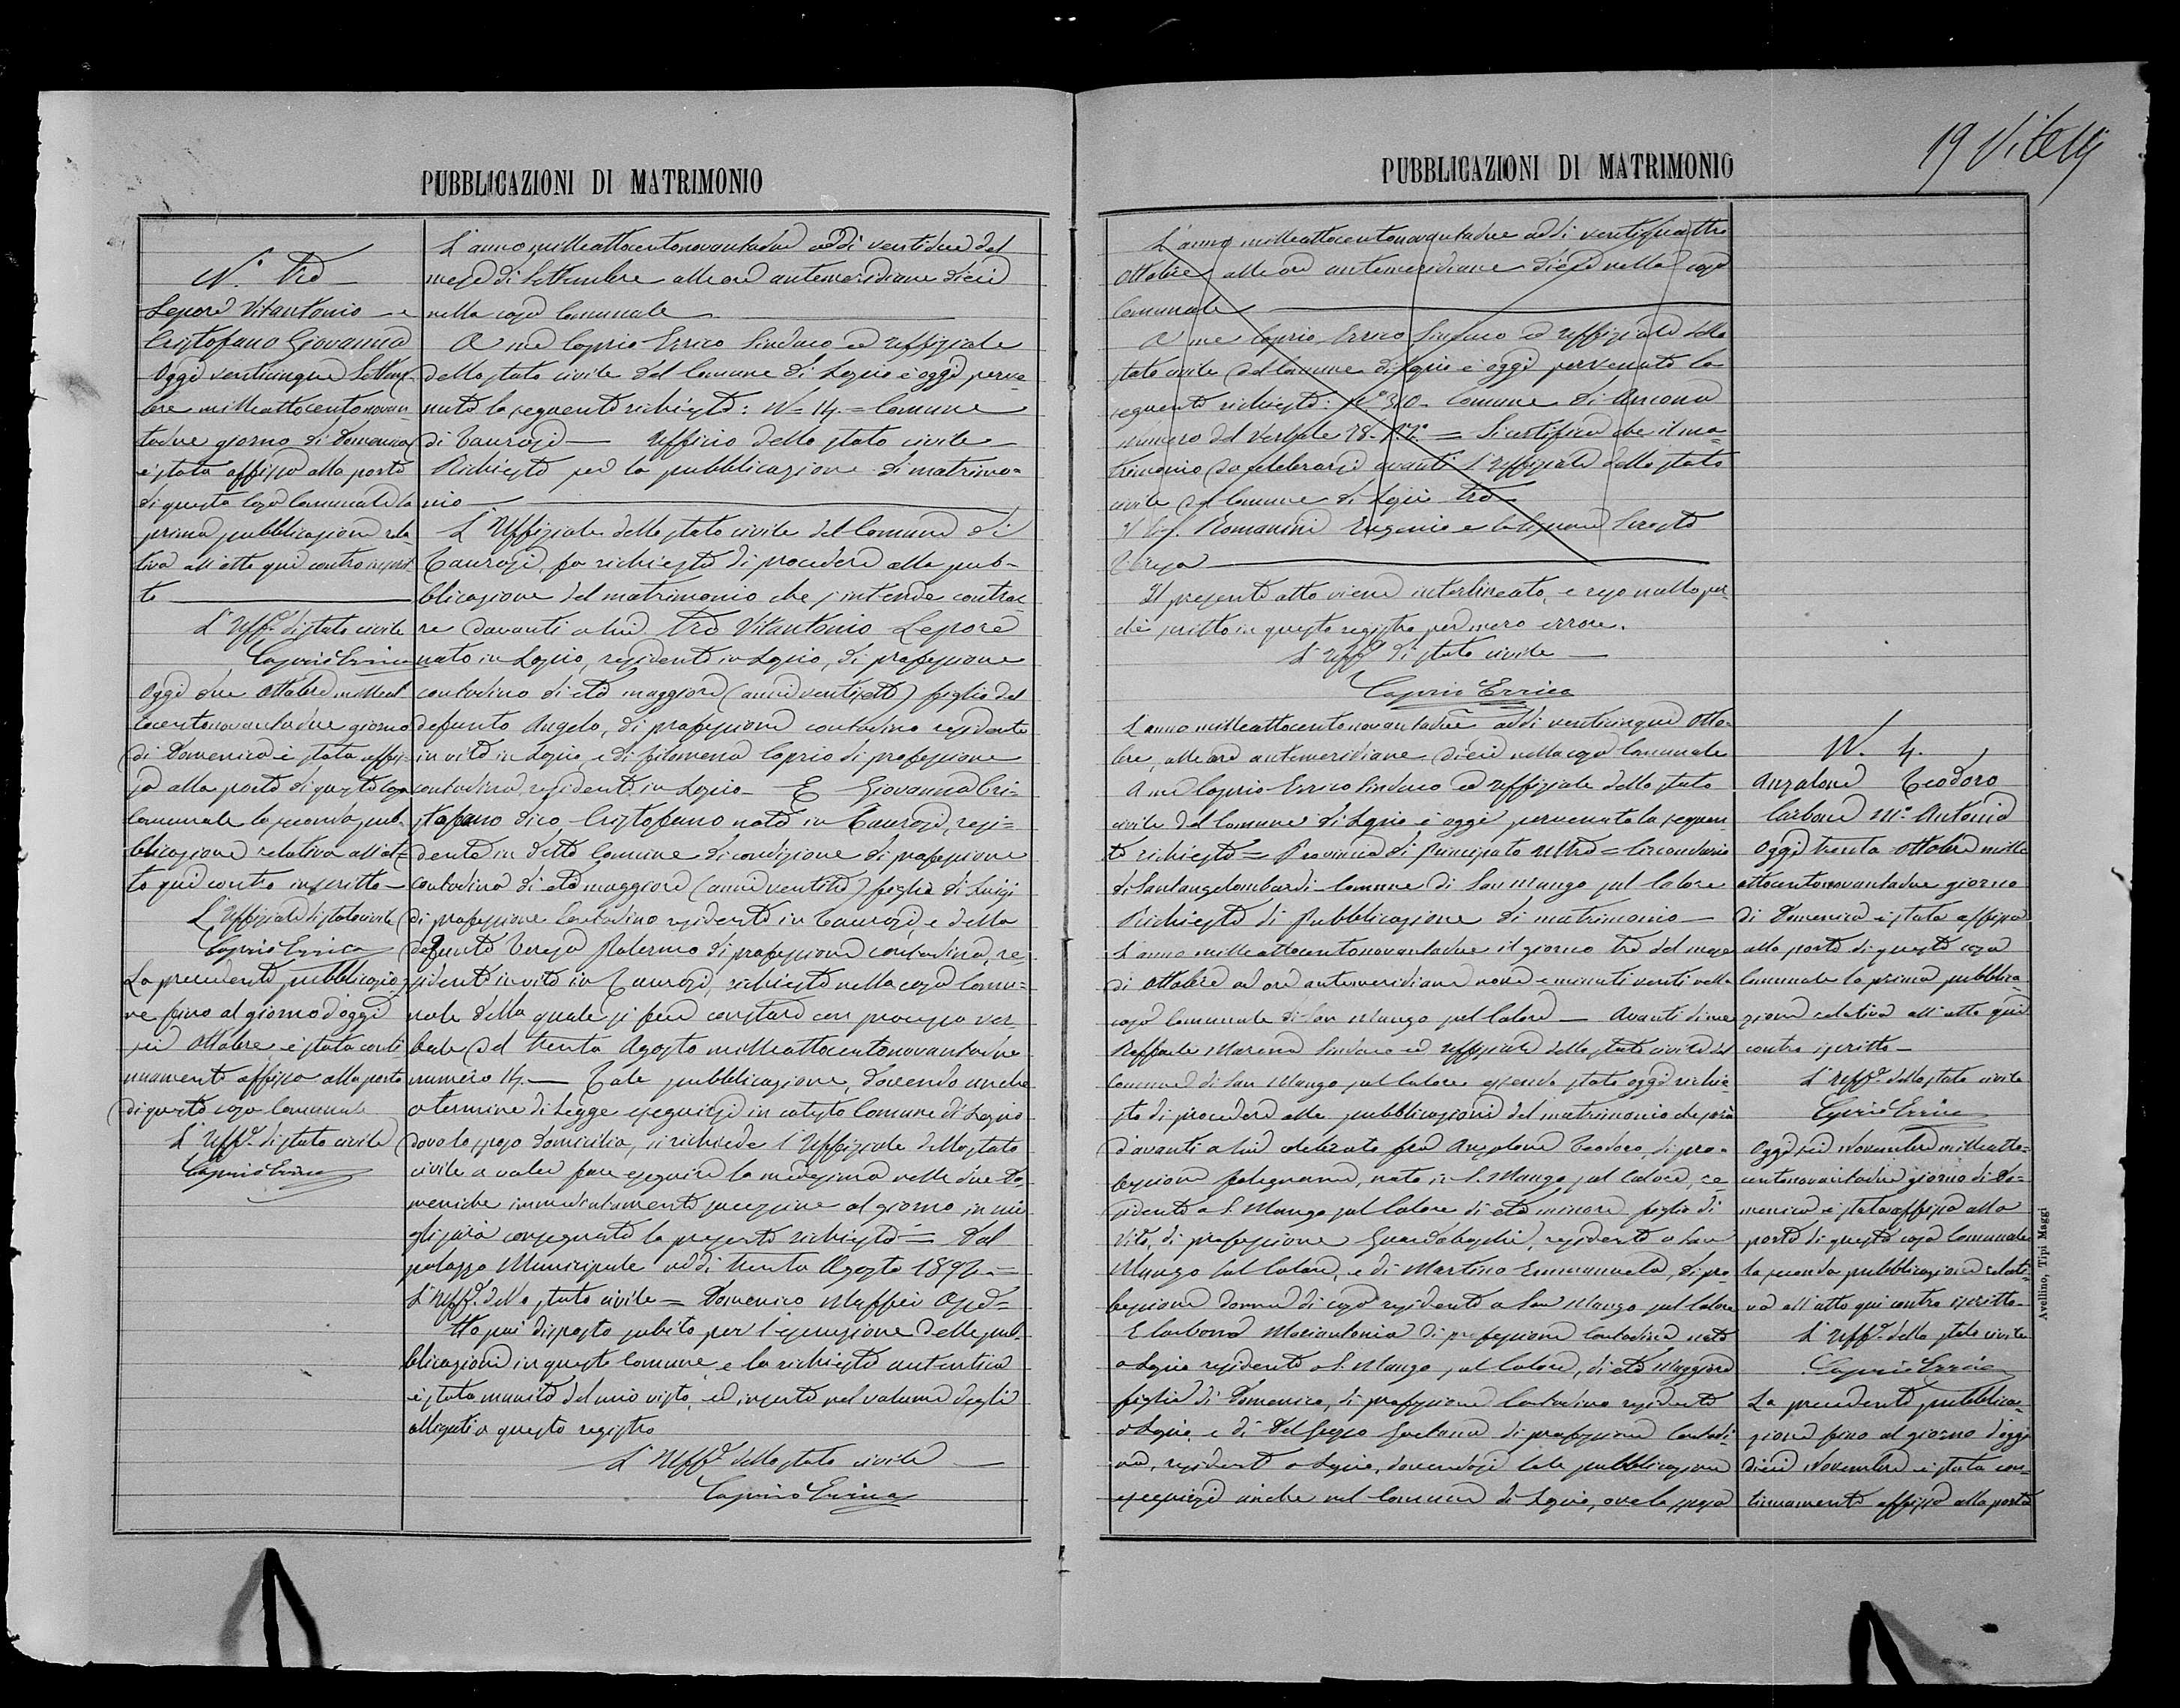 PUBBLICAZIONI DI MATRIMONIO
N.° Tre
Lepore Vitantonio e
Cristofano Giovanna
Oggi venticinque Settem-
bre milleottocentonovan
tadue giorno di Domenica
è stata affissa alla porta
di questa Casa Comunale la
prima pubblicazione rela-
tiva all'atto qui contro inscrit
to
L'Uff.e di stato civile
Caprio Errico
Oggi due Ottobre milleot
tocentonovantadue giorno
di Domenica è stata affis-
sa alla porta di questa casa
Comunale la seconda pub-
blicazione relativa all'at-
to qui contro inscritto
L'Uffiziale di stato civile
Caprio Errico
La precedente pubblicazio-
ne fino al giorno d'oggi
sei Ottobre è stata conti
nuamente affissa alla porta
di questa casa Comunale
L'Uff.e di stato civile
Caprio Errico
L'anno milleottocentonovantadue addi ventidue del
mese di Settembre alle ore antemeridiane dieci
nella casa Comunale
A me Caprio Errico Sindaco ed Uffiziale
dello stato civile del Comune di Lapio è oggi perve-
nuta la seguente richiesta: N= 14.= Comune
di Taurasi — Ufficio dello stato civile
Richiesta per la pubblicazione di matrimo-
nio
L'Uffiziale dello stato civile del Comune di
Taurasi, fa richiesta di procedere alla pub-
blicazione del matrimonio che s'intende contrar-
re davanti a lui tra Vitantonio Lepore
nato in Lapio, residente in Lapio, di professione
contadino di età maggiore (anni ventisette) figlio del
defunto Angelo, di professione contadino residente
in vita in Lapio, e di Filomena Caprio di professione
contadina, residente in Lapio — E Giovanna Cri-
stafano dico Cristofano nata in Taurasi, resi-
dente in detto Comune di condizione di professione
contadina di età maggiore (anni ventitre) figlia di Luigi
di professione Contadino residente in Taurasi, e della
defunta Teresa Palermo di professione contadina, re-
sidente in vita in Taurasi, richiesta nella casa Comu-
nale della quale si fece constare con processo ver-
bale del trenta Agosto milleottocentonovantadue
numero 14.— Tale pubblicazione, dovendo anche
a termine di Legge eseguirsi in cotesto Comune di Lapio
dove lo sposo domicilia, si richiede l'Uffiziale dello stato
civile a voler fare eseguire la medesima nelle due Do
meniche immediatamente successive al giorno in cui
gli sarà consegnata la presente richiesta = Dal
palazzo Municipale addi trenta Agosto 1892.=
L'Uff.e dello stato civile = Domenico Maffei
Ho poi disposto subito per l'esecuzione delle pub-
blicazioni in questo Comune, e la richiesta autentica
è stata munita del mio visto, ed inserta nel volume degli
allegati a questo registro
L'Uff.e dello stato civile
Caprio Errico
19
PUBBLICAZIONI DI MATRIMONIO
L'anno milleottocentonovantadue addi ventiquattro
Ottobre, alle ore antemeridiane dieci nella casa
Comunale
A me Caprio Errico Sindaco ed Uffiziale dello
stato civile del Comune di Lapio è oggi pervenuta la
seguente richiesta: Comune di Ancona
Numero del Verbale 78. = Si certifica che il ma-
trimonio da celebrarsi avanti l'Uffiziale dello stato
civile del Comune di Lapio tra
Il Sig. Romanini Eugenio e la Signora
Teresa
Il presente atto viene interlineato, e reso nullo per-
chè scritto in questo registro per mero errore.
L'Uff.e di stato civile
Caprio Errico
L'anno milleottocentonovantadue addi venticinque Otto-
bre, alle ore antemeridiane dieci nella casa Comunale
A me Caprio Errico Sindaco ed Uffiziale dello stato
civile del Comune di Lapio è oggi pervenuta la seguen-
te richiesta = Provincia di Principato Ultra = Circondario
di Santangelolombardi - Comune di San Mango sul Calore
Richiesta di Pubblicazione di matrimonio —
L'anno milleottocentonovantadue il giorno tre del mese
di Ottobre ad ore antemeridiane nove e minuti venti nella
casa Comunale di San Mango sul Calore — Avanti di me
Raffaele Marena Sindaco ed Uffiziale dello stato civile del
Comune di San Mango sul Calore essendo stato oggi richie
sto di procedere alle pubblicazioni del matrimonio che sarà
davanti a lui celebrato fra Anzalone Teodoro, di pro-
fessione falegname, nato in S. Mango sul Calore, re-
sidente a S. Mango sul Calore di età minore figlio di
Vito, di professione Guardaboschi, residente a San
Mango sul Calore, e di Martino Emmanuela, di pro-
fessione donna di casa residente a San Mango sul Calore
E Carbone Mariantonia di professione Contadina nata
a Lapio residente a S. Mango sul Calore, di età Maggiore
figlia di Domenico, di professione Contadino residente
a Lapio, e di Del Gaetana di professione Contadi-
na, residente a Lapio, dovendosi tale pubblicazione
eseguirsi anche nel Comune di Lapio, ove la sposa
N. 4.
Anzalone Teodoro
Carbone M.a Antonia
Oggi trenta Ottobre mille
ottocentonovantadue giorno
di Domenica è stata affissa
alla porta di questa casa
Comunale la prima pubblica-
zione relativa all'atto qui
contro iscritto —
L'Uff.e dello stato civile
Caprio Errico
Oggi sei Novembre milleotto-
centonovantadue giorno di Do-
menica è stata affissa alla
porta di questa casa Comunale
la seconda pubblicazione relati-
va all'atto qui contro iscritto
L'Uff.e dello stato civile
Caprio Errico
La precedente pubblica-
zione fino al giorno d'oggi
dieci Novembre è stata con-
tinuamente affissa alla porta
Avellino, Tipi Maggi